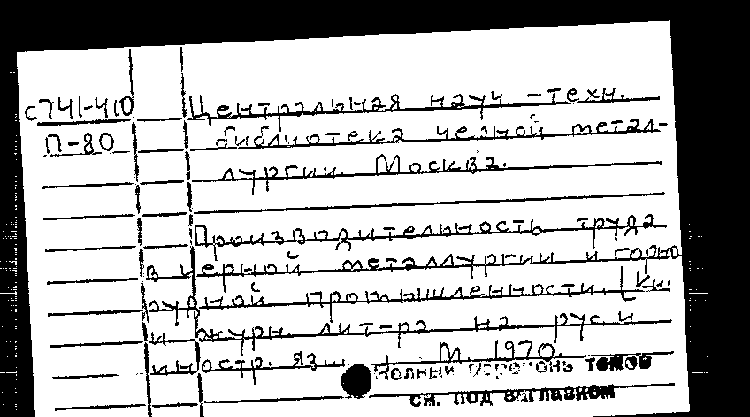 с741-410 Центральная науч-техн.
П-80 библиотека черной метал-
лургии. Москва.
Производительность труда
в черной металлургии и горно
рудной промышленности. [Кн.
и журн. лит-ра на рус. и
иностр. яз... М. 1970.
Полный перечень томов
см. под заглавием